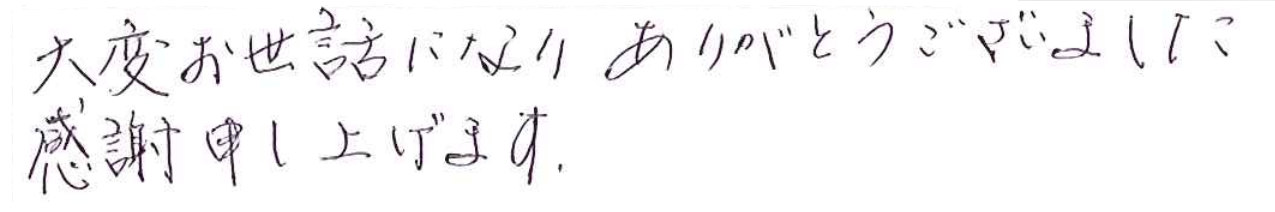 大変お世話になり ありがとうございました
感謝申し上げます.